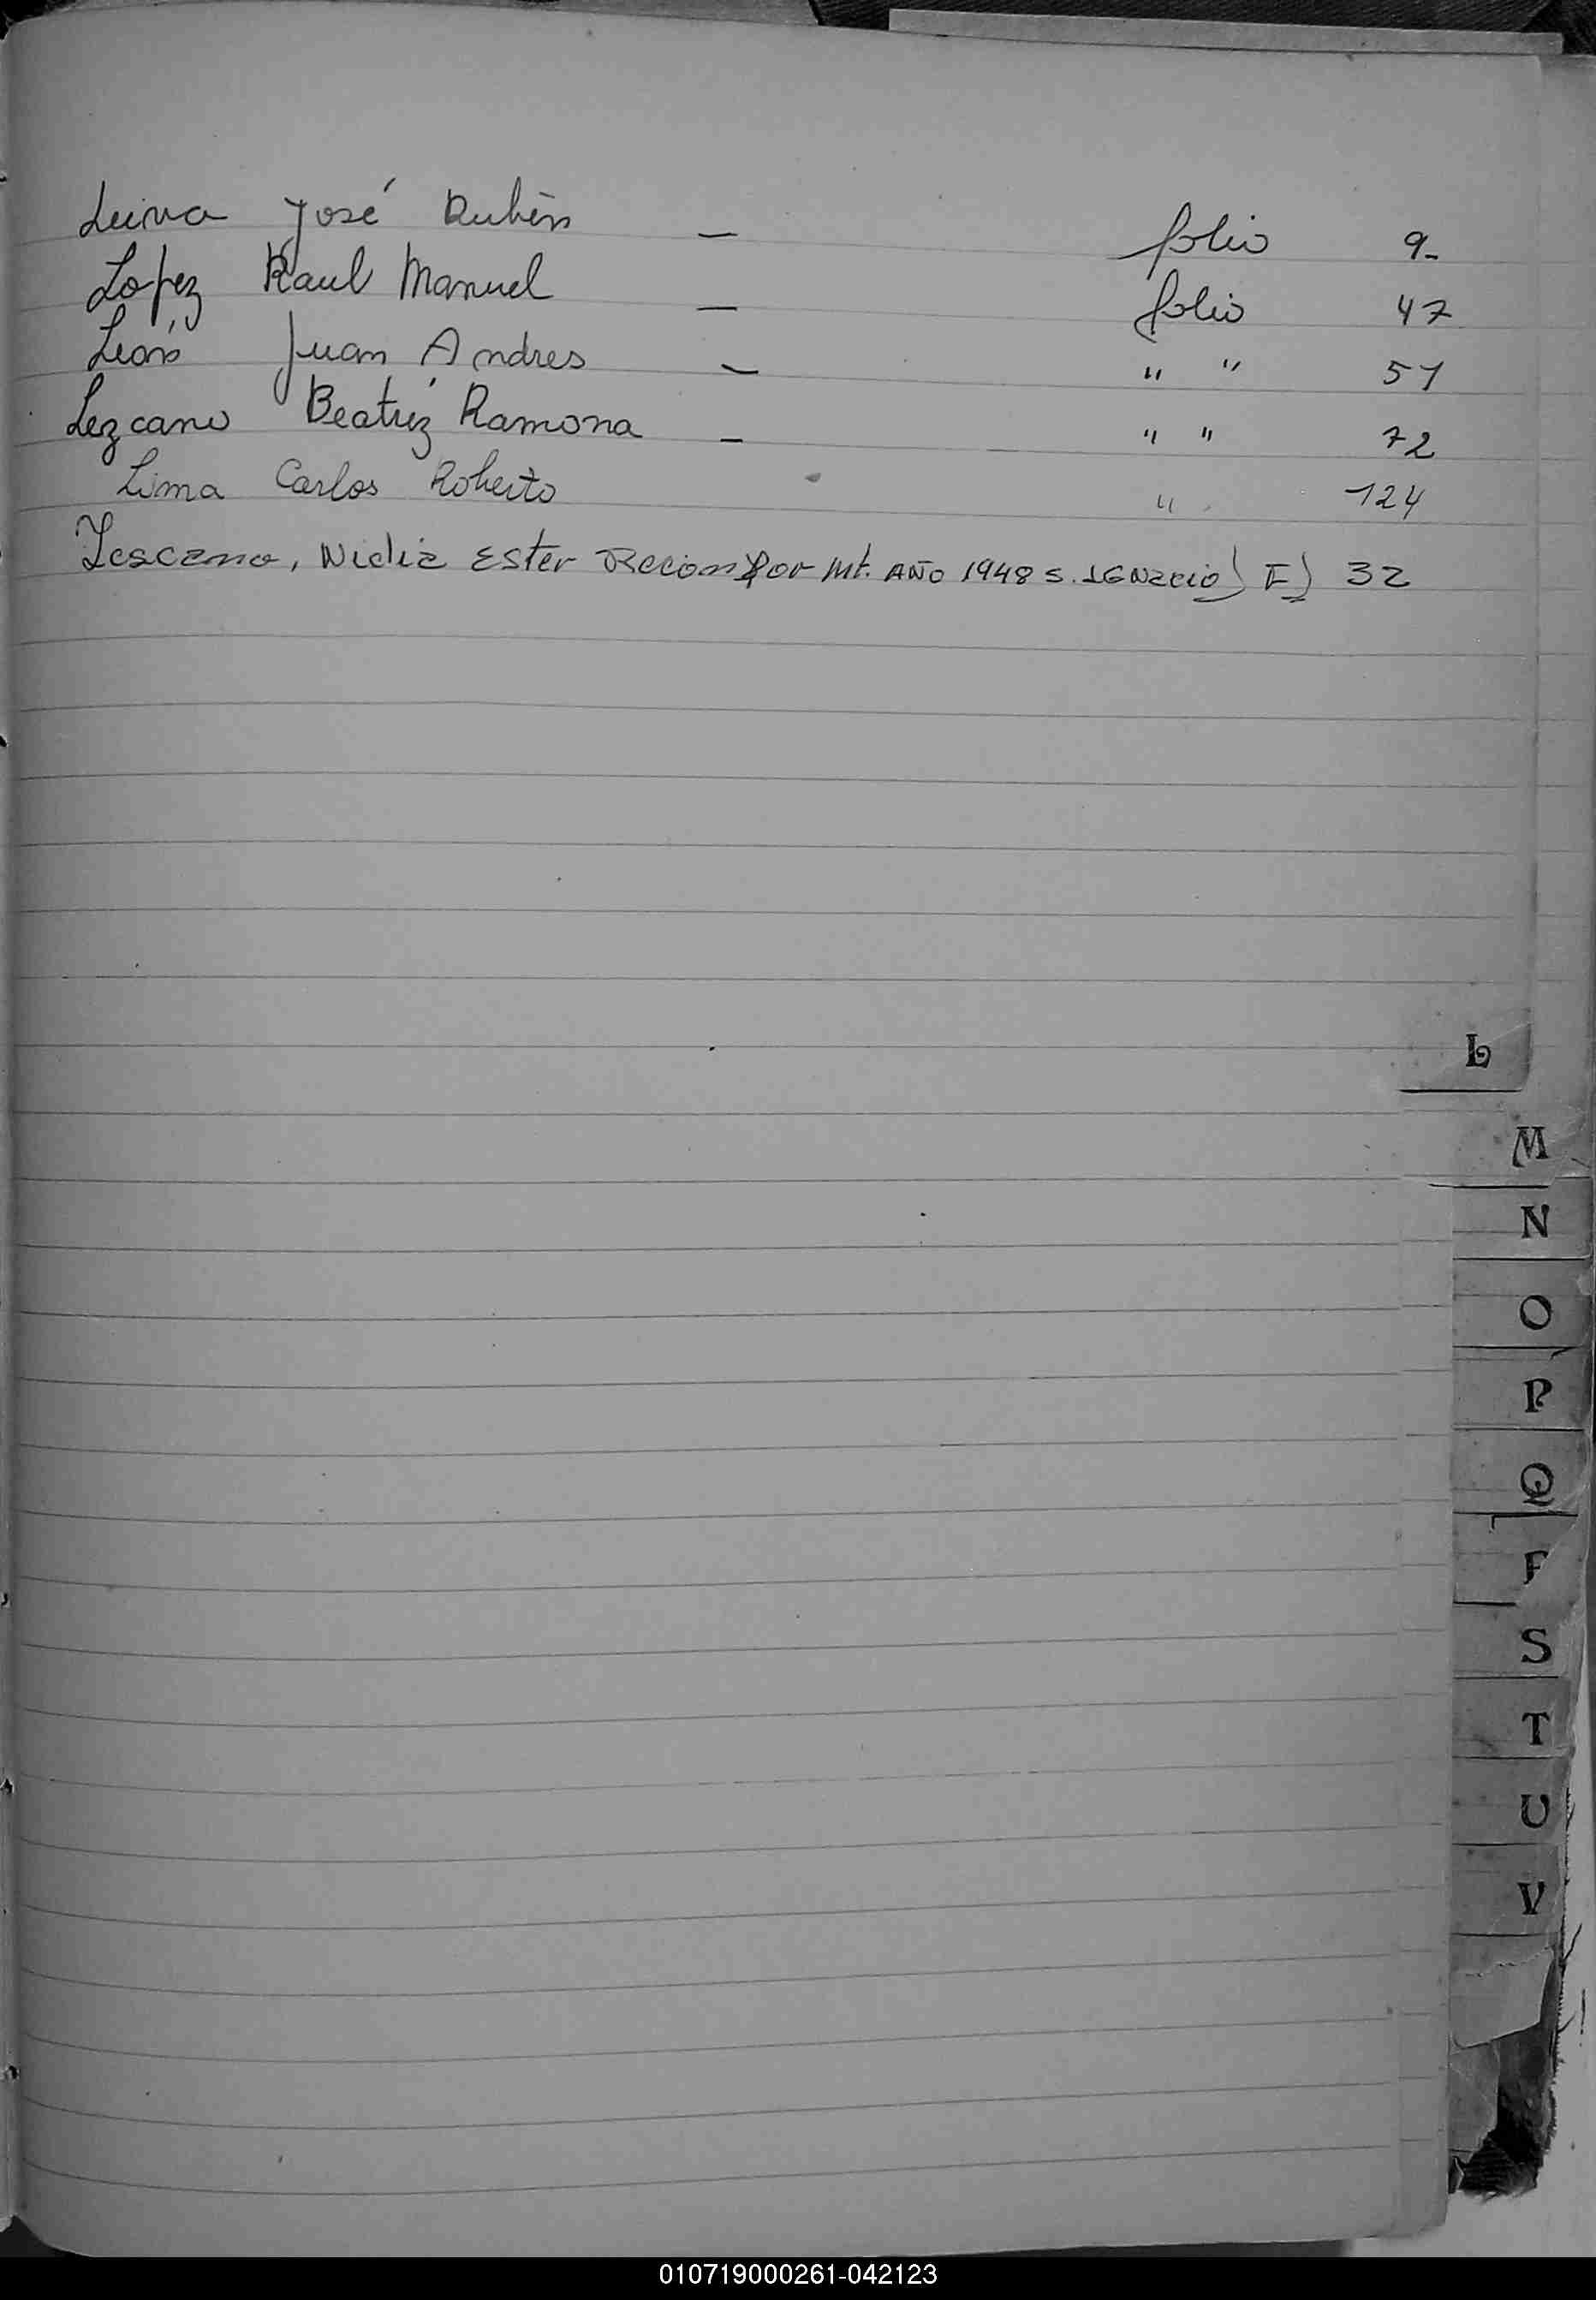 Leiva José Rubén — folio 9-
Lopez Raul Manuel — folio 47
León Juan Andres — " " 51
Lezcano Beatriz Ramona — " " 72
Lima Carlos Roberto " 124
Lescano, Nidia Ester Recon Por Mt. AÑO 1948 S. IGNacio) F) 32
L
M
N
O
P
Q
S
T
U
V
010719000261-042123